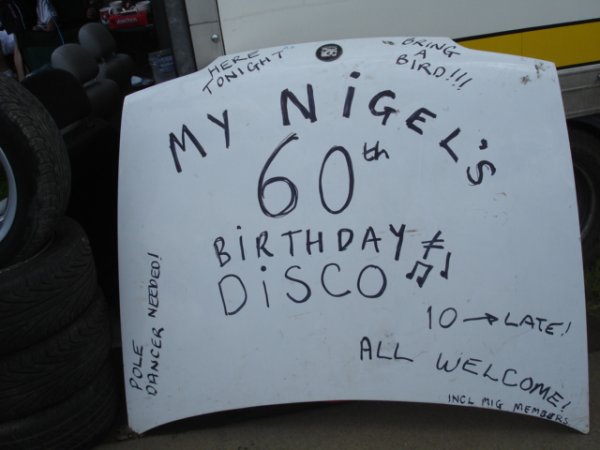 HERE
TONIGHT
BRING
A
BIRD!!!
MY NiGEL'S
60th
BiRTHDAY &
DiSCO
10 → LATE!
ALL WELCOME!
INCL MIG MEMBERS
POLE
DANCER NEEDED!